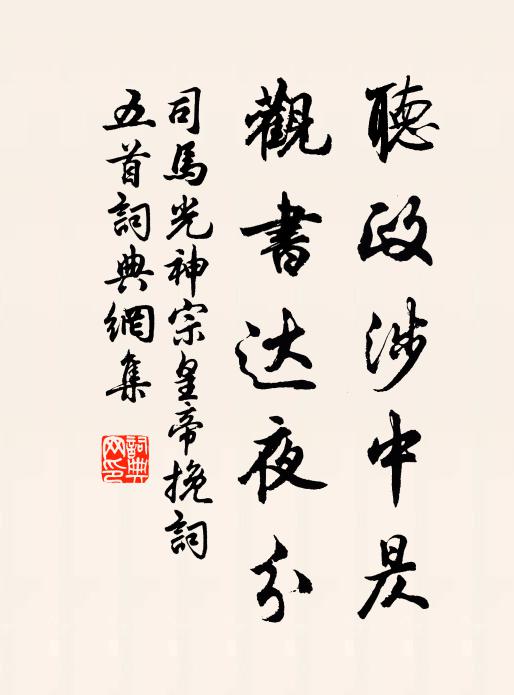 聽政涉中昃
觀書达夜分
司馬光神宗皇帝挽詞
五首詞典網集
詞典网印